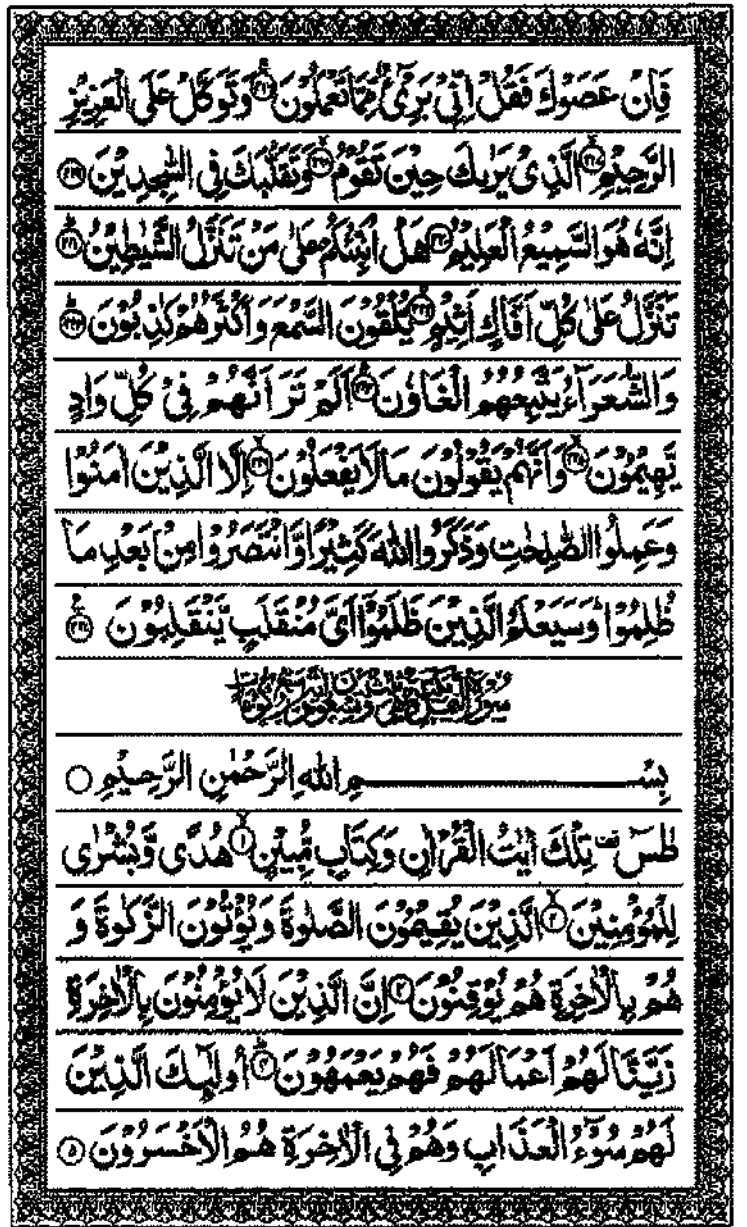 فَاِنْ عَصَوْكَ فَقُلْ اِنِّیْ بَرِیْٓءٌ مِّمَّا تَعْمَلُوْنَ ﴿۲۱۶﴾ وَتَوَكَّلْ عَلَی الْعَزِیْزِ
الرَّحِیْمِ ﴿۲۱۷﴾ الَّذِیْ یَرٰىكَ حِیْنَ تَقُوْمُ ﴿۲۱۸﴾ وَتَقَلُّبَكَ فِی السّٰجِدِیْنَ ﴿۲۱۹﴾
اِنَّهٗ هُوَ السَّمِیْعُ الْعَلِیْمُ ﴿۲۲۰﴾ هَلْ اُنَبِّئُكُمْ عَلٰی مَنْ تَنَزَّلُ الشَّیٰطِیْنُ ﴿۲۲۱﴾
تَنَزَّلُ عَلٰی كُلِّ اَفَّاكٍ اَثِیْمٍ ﴿۲۲۲﴾ یُّلْقُوْنَ السَّمْعَ وَاَكْثَرُهُمْ كٰذِبُوْنَ ﴿۲۲۳﴾
وَالشُّعَرَآءُ یَتَّبِعُهُمُ الْغَاوٗنَ ﴿۲۲۴﴾ اَلَمْ تَرَ اَنَّهُمْ فِیْ كُلِّ وَادٍ
یَّهِیْمُوْنَ ﴿۲۲۵﴾ وَاَنَّهُمْ یَقُوْلُوْنَ مَالَا یَفْعَلُوْنَ ﴿۲۲۶﴾ اِلَّا الَّذِیْنَ اٰمَنُوْا
وَعَمِلُوا الصّٰلِحٰتِ وَذَكَرُوا اللّٰهَ كَثِیْرًا وَّانْتَصَرُوْا مِنْۢ بَعْدِ مَا
ظُلِمُوْا ؕ وَسَیَعْلَمُ الَّذِیْنَ ظَلَمُوْۤا اَیَّ مُنْقَلَبٍ یَّنْقَلِبُوْنَ ﴿۲۲۷﴾
سُوْرَةُ النَّمْلِ مَكِّیَّةٌ
بِسْمِ اللّٰهِ الرَّحْمٰنِ الرَّحِیْمِ ○
طٰسٓ ۫ تِلْكَ اٰیٰتُ الْقُرْاٰنِ وَكِتَابٍ مُّبِیْنٍ ﴿۱﴾ هُدًی وَّبُشْرٰی
لِلْمُؤْمِنِیْنَ ﴿۲﴾ الَّذِیْنَ یُقِیْمُوْنَ الصَّلٰوةَ وَیُؤْتُوْنَ الزَّكٰوةَ وَ
هُمْ بِالْاٰخِرَةِ هُمْ یُوْقِنُوْنَ ﴿۳﴾ اِنَّ الَّذِیْنَ لَا یُؤْمِنُوْنَ بِالْاٰخِرَةِ
زَیَّنَّا لَهُمْ اَعْمَالَهُمْ فَهُمْ یَعْمَهُوْنَ ﴿۴﴾ اُولٰٓىِٕكَ الَّذِیْنَ
لَهُمْ سُوْٓءُ الْعَذَابِ وَهُمْ فِی الْاٰخِرَةِ هُمُ الْاَخْسَرُوْنَ ﴿۵﴾